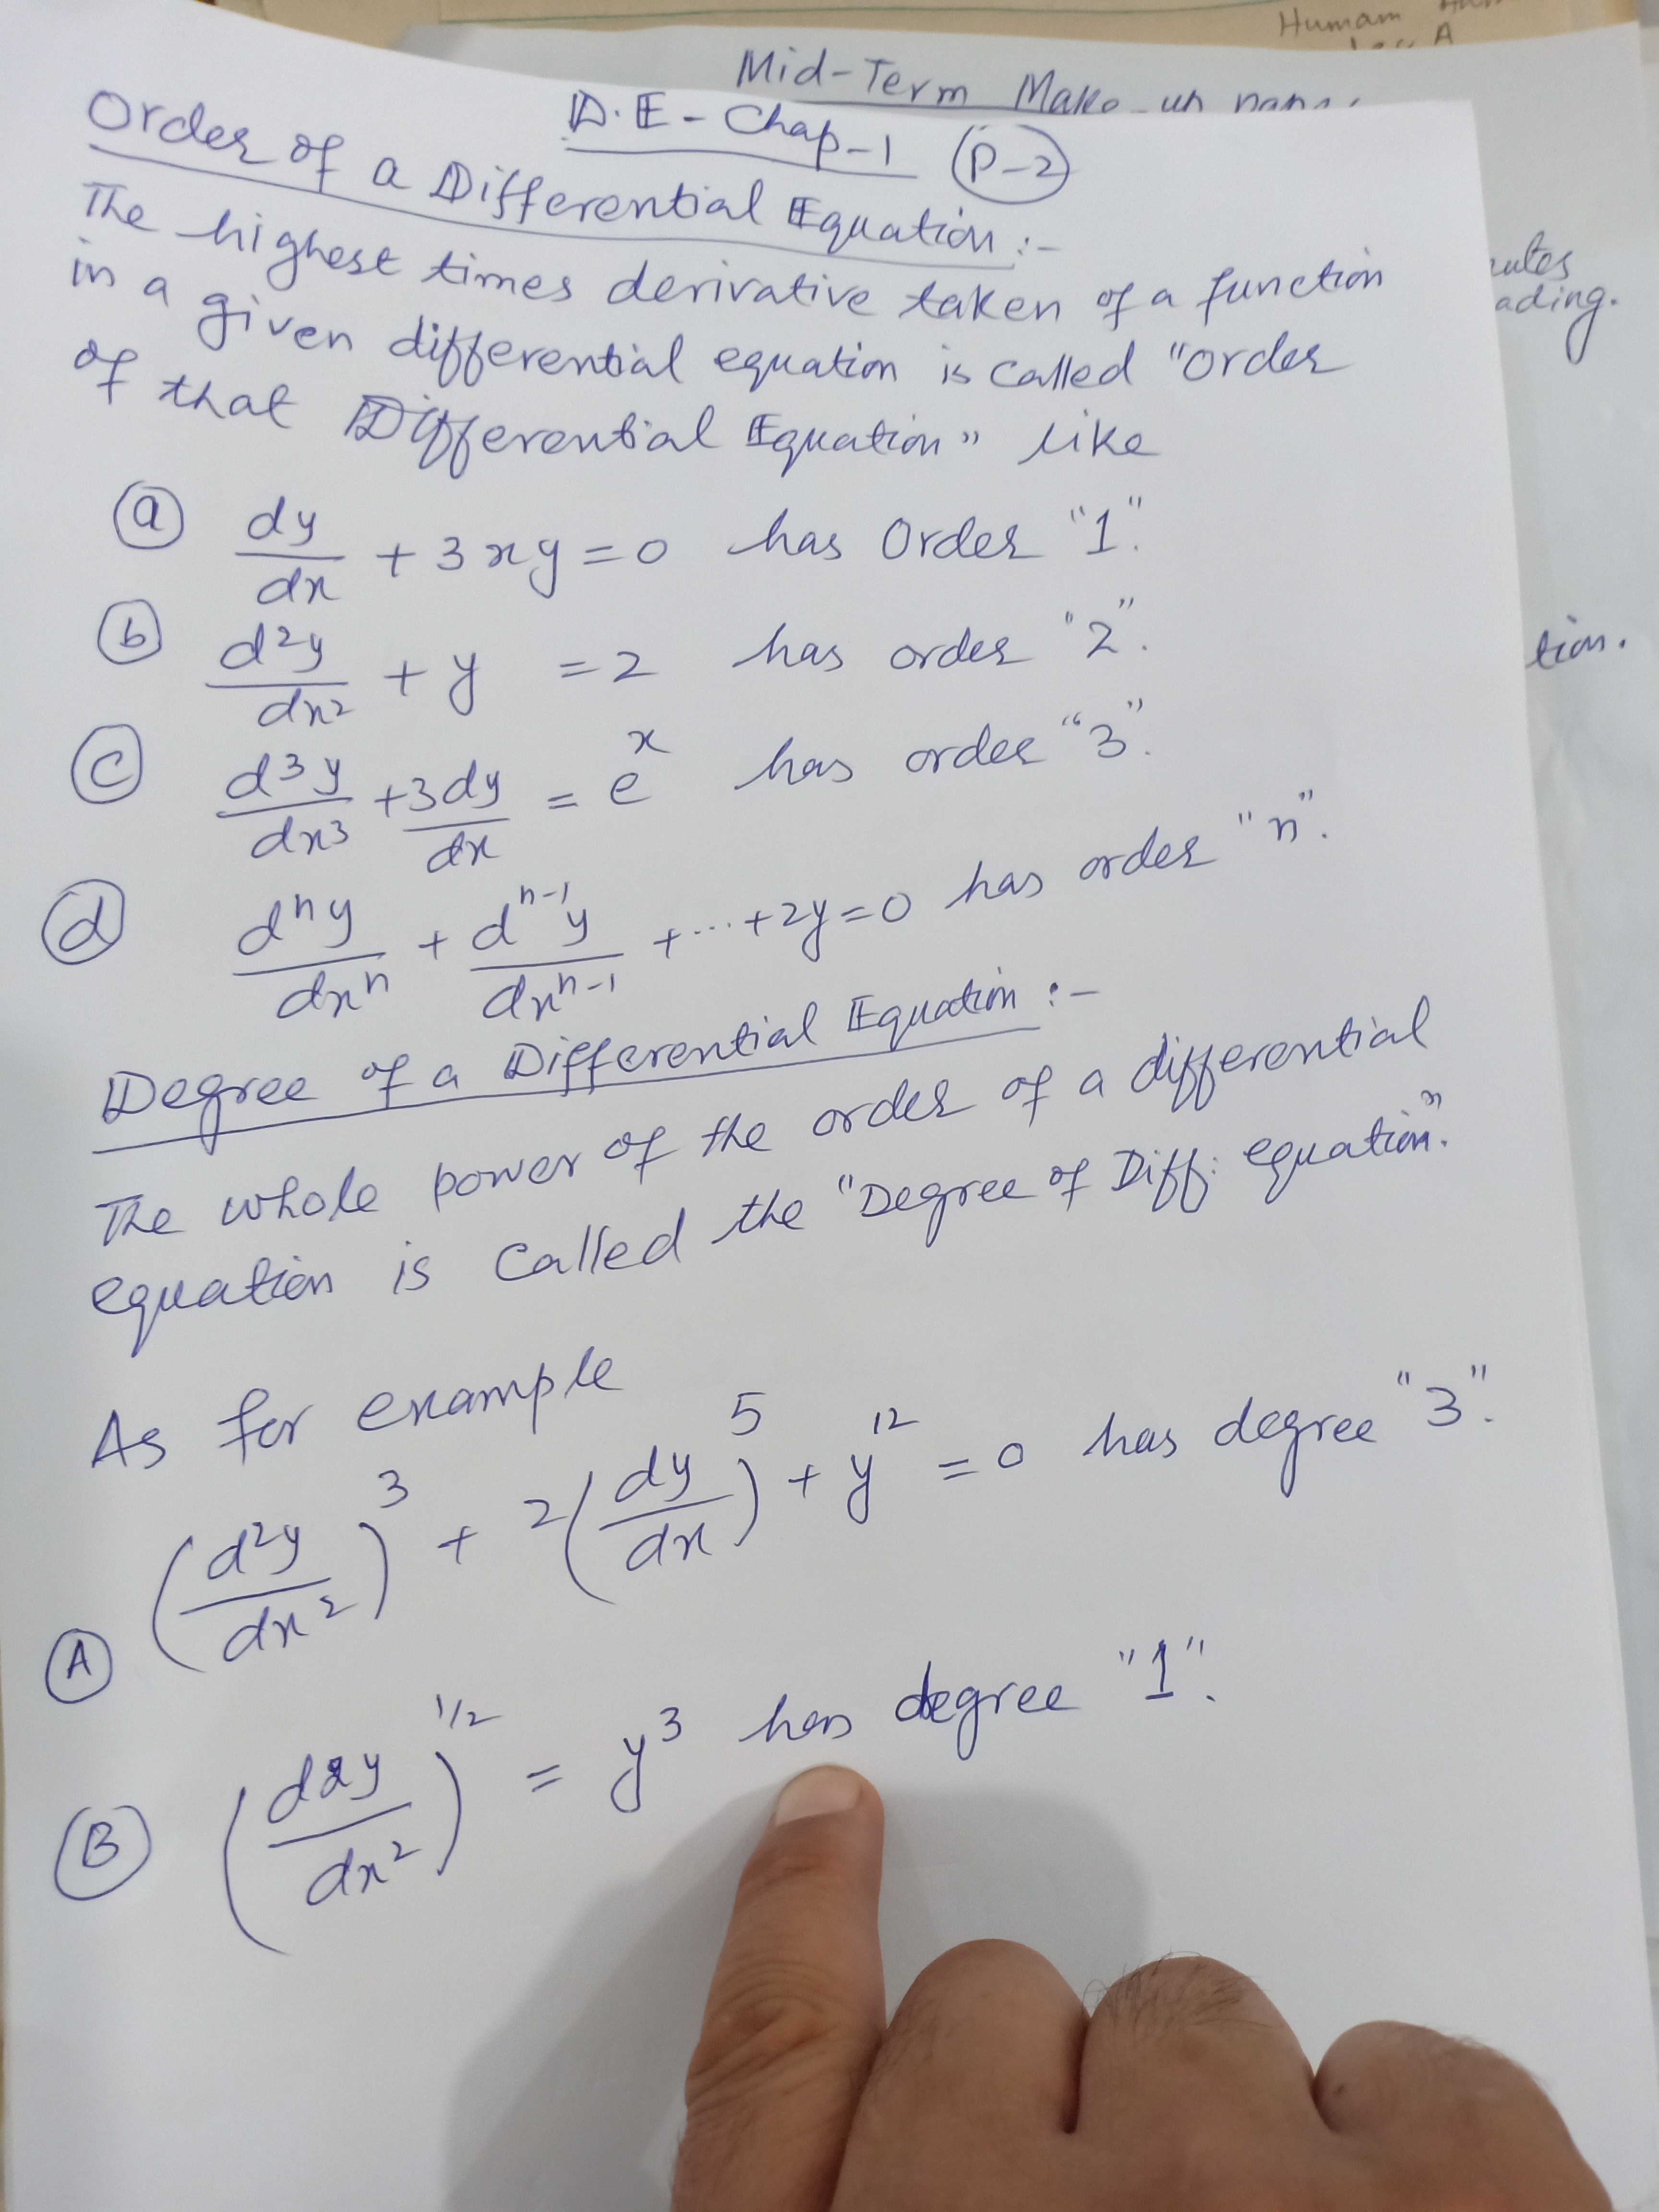 Humam
A
Mid-Term Make-up
D.E - Chap-1 (P-2)
Order of a Differential Equation :-
The highest times derivative taken of a function
in a given differential equation is called "Order
of that Differential Equation" like
(a) dy/dx + 3xy = 0 has Order "1".
(b) d²y/dx² + y = 2 has order "2".
(c) d³y/dx³ + 3dy/dx = eˣ has order "3".
(d) dⁿy/dxⁿ + dⁿ⁻¹y/dxⁿ⁻¹ + ... + 2y = 0 has order "n".
Degree of a Differential Equation :-
The whole power of the order of a differential
equation is called the "Degree of Diff: equation".
As for example
(A) (d²y/dx²)³ + 2(dy/dx)⁵ + y¹² = 0 has degree "3".
(B) (d²y/dx²)^1/2 = y³ has degree "1".
ading.
tion.